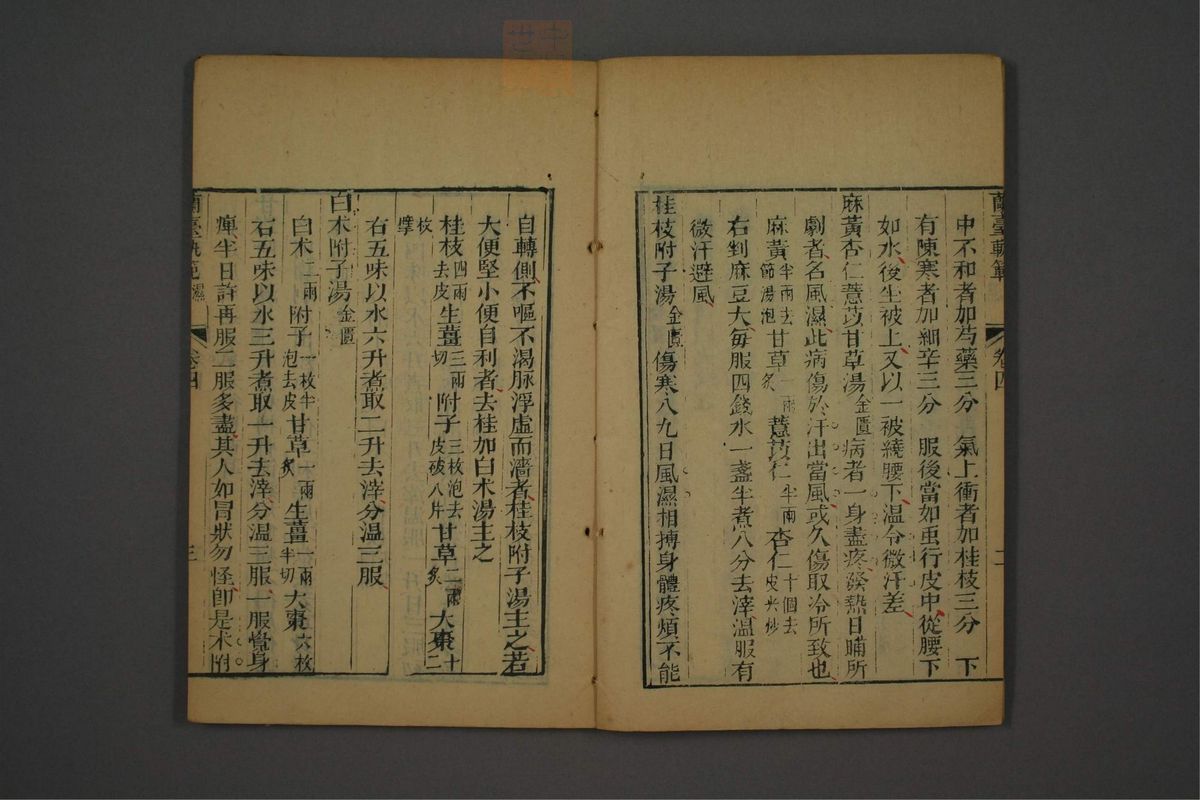 蘭臺軌範
卷四
二
中不和者加芍藥三分 氣上衝者加桂枝三分 下
有陳寒者加細辛三分 服後當如虫行皮中從腰下
如氷後坐被上又以一被繞腰下温令微汗差
麻黃杏仁薏苡甘草湯金匱 病者一身盡疼發熱日晡所
劇者名風濕此病傷於汗出當風或久傷取冷所致也
麻黃半兩去節湯泡 甘草一兩炙 薏苡仁半兩 杏仁十個去皮尖炒
右剉麻豆大每服四錢水一盞半煮八分去滓温服有
微汗避風
桂枝附子湯金匱 傷寒八九日風濕相搏身體疼煩不能
自轉側不嘔不渴脉浮虛而濇者桂枝附子湯主之若
大便堅小便自利者去桂加白朮湯主之
桂枝四兩去皮 生薑三兩切 附子三枚泡去皮破八片 甘草二兩炙 大棗十二
枚擘
右五味以水六升煮取二升去滓分温三服
白朮附子湯金匱
白朮二兩 附子一枚半泡去皮 甘草一兩炙 生薑一兩半切 大棗六枚
右五味以水三升煮取一升去滓分温三服一服覺身
痺半日許再服三服多盡其人如冒狀勿怪卽是朮附
蘭臺軌範 濕
卷四
三